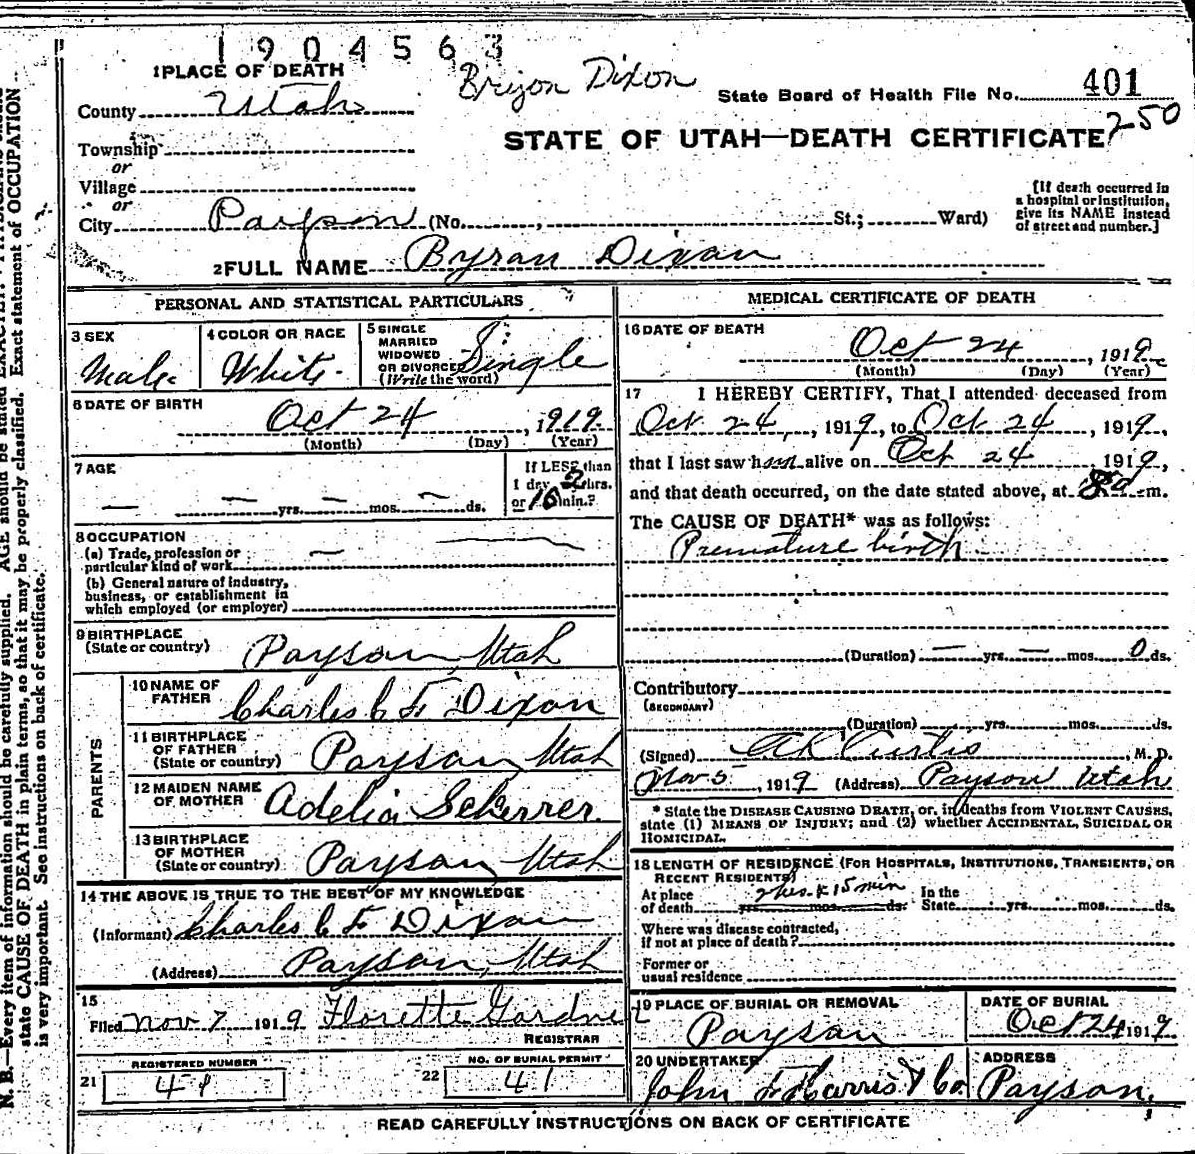 1904563
1 PLACE OF DEATH
Brizon Dixon
State Board of Health File No. 401
County Utah
250
STATE OF UTAH—DEATH CERTIFICATE
Township
or
Village
or
City Payson (No. , St.; Ward)
[If death occurred in
a hospital or institution,
give its NAME instead
of street and number.]
2 FULL NAME Byran Dixon
PERSONAL AND STATISTICAL PARTICULARS
3 SEX
Male
4 COLOR OR RACE
White
5 SINGLE
MARRIED
WIDOWED
OR DIVORCED
(Write the word)
Single
6 DATE OF BIRTH
Oct 24, 1919.
(Month) (Day) (Year)
7 AGE
— — yrs. — mos. — ds.
If LESS than
1 day 2 hrs.
or 15 min.?
8 OCCUPATION
(a) Trade, profession or
particular kind of work —
(b) General nature of industry,
business, or establishment in
which employed (or employer)
9 BIRTHPLACE
(State or country)
Payson, Utah
PARENTS
10 NAME OF
FATHER
Charles C F Dixon
11 BIRTHPLACE
OF FATHER
(State or country)
Payson Utah
12 MAIDEN NAME
OF MOTHER
Adelia Scherrer.
13 BIRTHPLACE
OF MOTHER
(State or country)
Payson, Utah
14 THE ABOVE IS TRUE TO THE BEST OF MY KNOWLEDGE
(Informant) Charles C F Dixon
(Address) Payson, Utah
15
Filed Nov 7 1919 Florette Gardner
REGISTRAR
REGISTERED NUMBER
21
NO. OF BURIAL PERMIT
22 41
MEDICAL CERTIFICATE OF DEATH
16 DATE OF DEATH
Oct 24, 1919
(Month) (Day) (Year)
17 I HEREBY CERTIFY, That I attended deceased from
Oct 24, 1919, to Oct 24, 1919,
that I last saw him alive on Oct 24, 1919,
and that death occurred, on the date stated above, at m.
The CAUSE OF DEATH* was as follows:
Premature birth
(Duration) — yrs. — mos. 0 ds.
Contributory
(SECONDARY)
(Duration) yrs. mos. ds.
(Signed) A L Curtis, M. D.
Nov 5, 1919 (Address) Payson Utah
* State the DISEASE CAUSING DEATH, or, in deaths from VIOLENT CAUSES,
state (1) MEANS OF INJURY; and (2) whether ACCIDENTAL, SUICIDAL OR
HOMICIDAL.
18 LENGTH OF RESIDENCE (FOR HOSPITALS, INSTITUTIONS, TRANSIENTS, OR
RECENT RESIDENTS)
At place 2 hrs & 15 min In the
of death yrs. mos. ds. State yrs. mos. ds.
Where was disease contracted,
if not at place of death?
Former or
usual residence
19 PLACE OF BURIAL OR REMOVAL
Payson
DATE OF BURIAL
Oct 24 1919
20 UNDERTAKER
John F Harris & Co.
ADDRESS
Payson.
READ CAREFULLY INSTRUCTIONS ON BACK OF CERTIFICATE
N. B.—Every item of information should be carefully supplied. AGE should be stated EXACTLY.
state CAUSE OF DEATH in plain terms, so that it may be properly classified. Exact statement of OCCUPATION
is very important. See instructions on back of certificate.